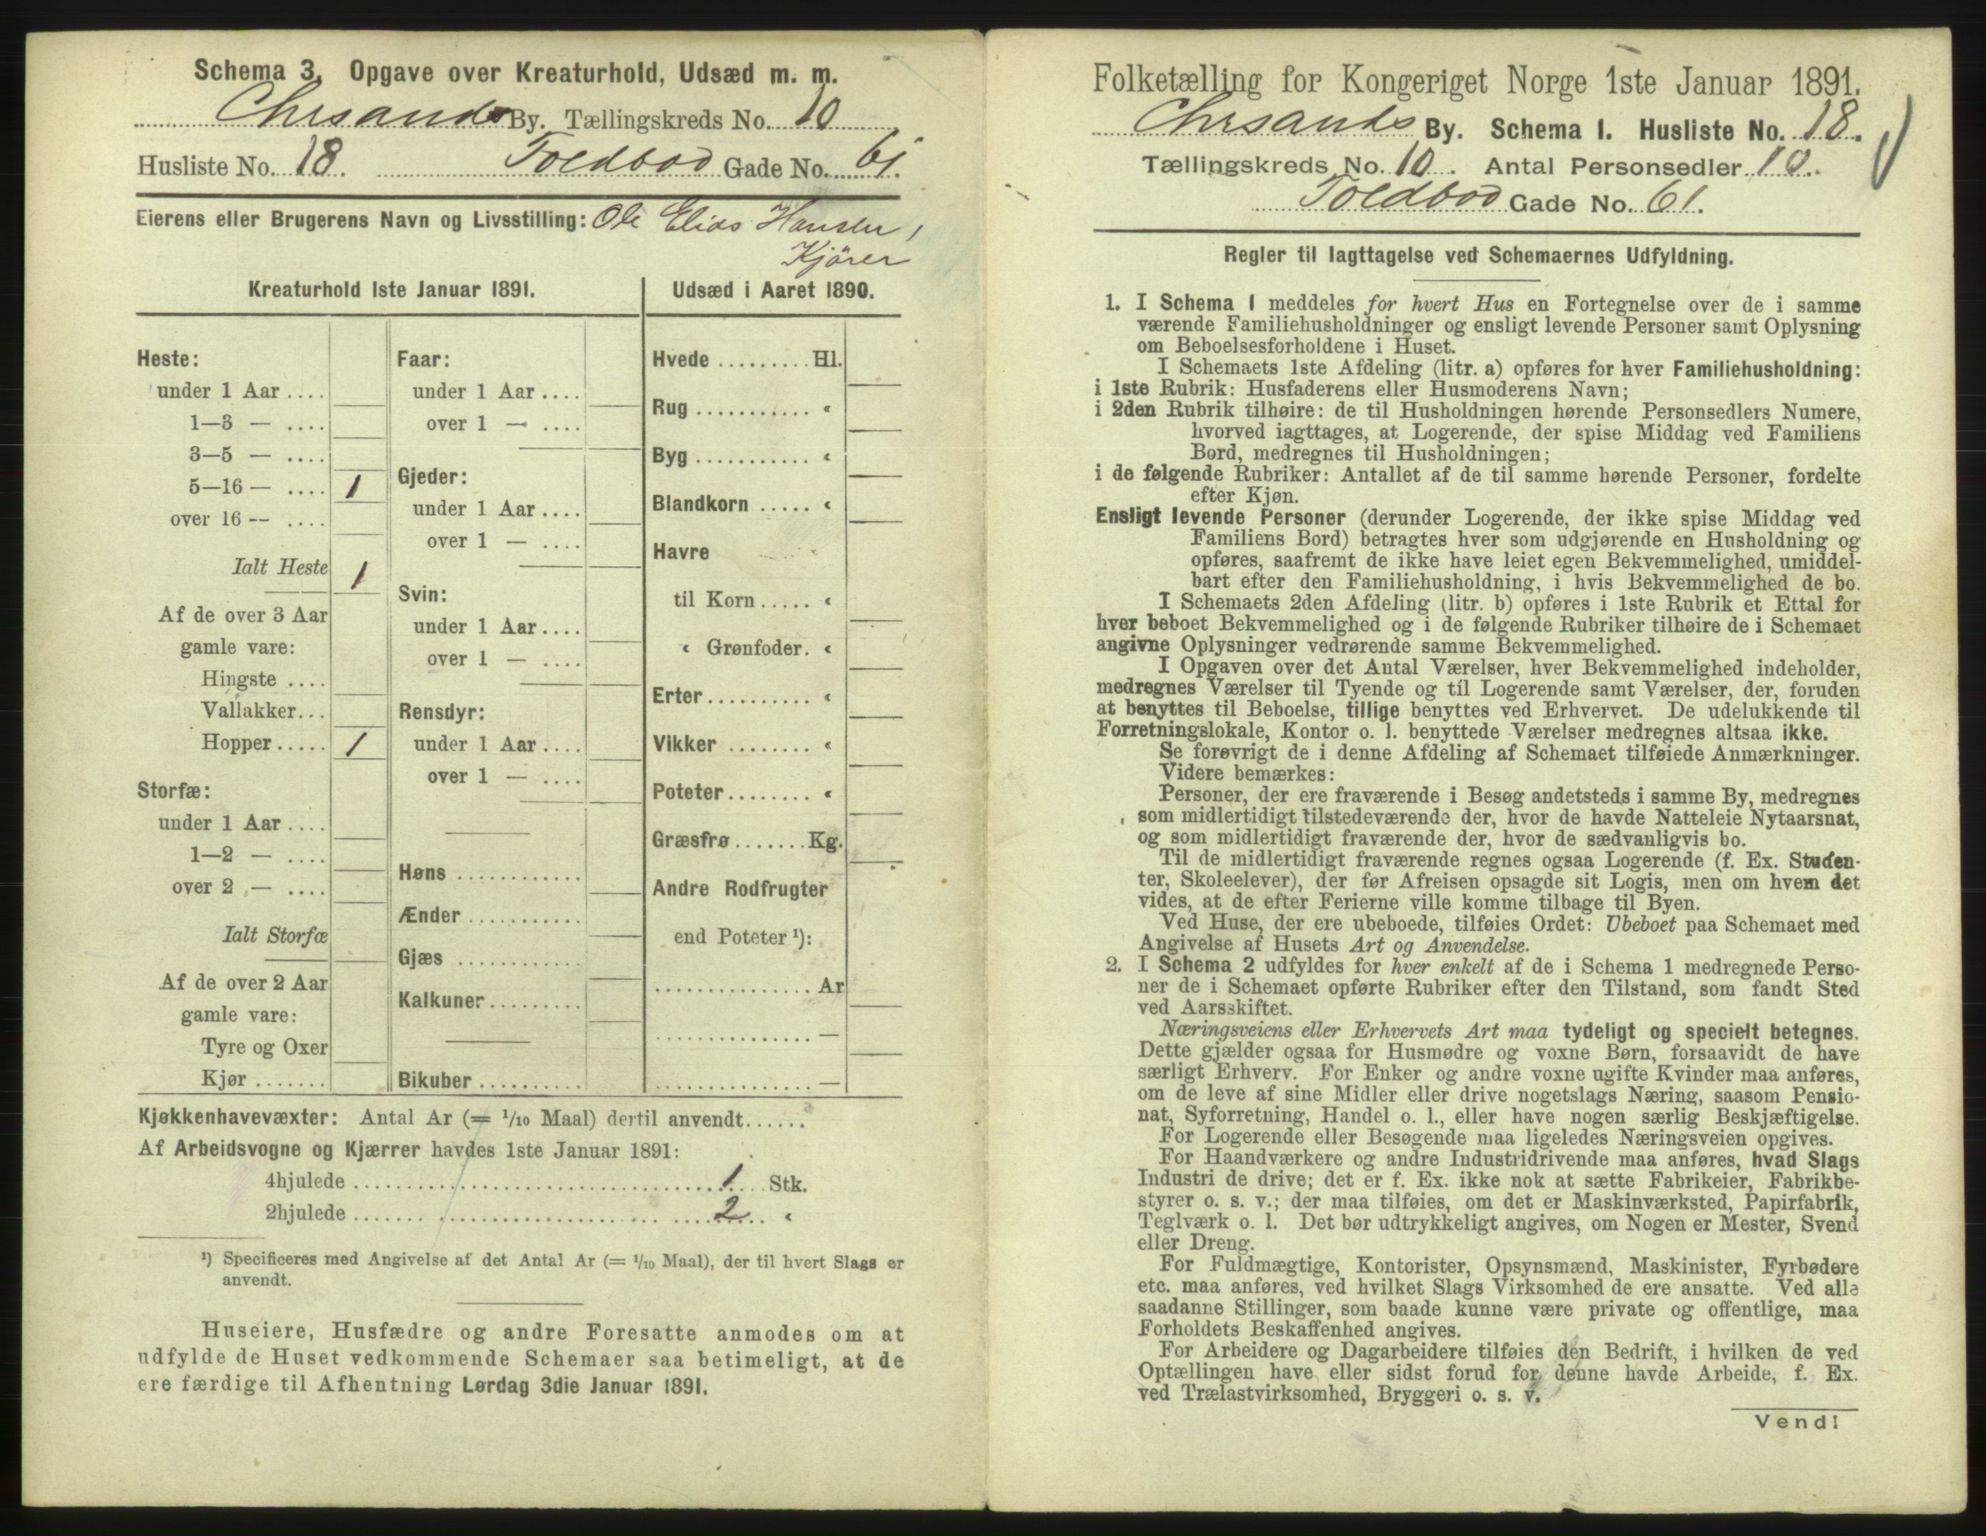 Schema 3. Opgave over Kreaturhold, Udsæd m. m.
Chrsands By. Tællingskreds No. 10
Husliste No. 18. Toldbod Gade No. 61.
Eierens eller Brugerens Navn og Livsstilling: Ole Elias Hansen,
Kjörer
Kreaturhold 1ste Januar 1891.
Heste:
under 1 Aar ....
1—3 — ....
3—5 — ....
5—16 — .... 1
over 16 — ....
Ialt Heste 1
Af de over 3 Aar
gamle vare:
Hingste ....
Vallakker...
Hopper..... 1
Storfæ:
under 1 Aar ....
1—2 — ....
over 2 — ....
Ialt Storfæ
Af de over 2 Aar
gamle vare:
Tyre og Oxer
Kjør .......
Faar:
under 1 Aar ....
over 1 — ....
Gjeder:
under 1 Aar ....
over 1 — ....
Svin:
under 1 Aar ....
over 1 — ....
Rensdyr:
under 1 Aar ....
over 1 — ....
Høns ...........
Ænder ...........
Gjæs ...........
Kalkuner.........
Bikuber ..........
Udsæd i Aaret 1890.
Hvede ......... Hl.
Rug ........... «
Byg ........... «
Blandkorn ..... «
Havre
til Korn ..... «
« Grønfoder. «
Erter .......... «
Vikker ........ «
Poteter........ «
Græsfrø ....... Kg.
Andre Rodfrugter
end Poteter ¹):
............... Ar
............... —
............... —
Kjøkkenhavevæxter: Antal Ar (= 1/10 Maal) dertil anvendt......
Af Arbeidsvogne og Kjærrer havdes 1ste Januar 1891:
4hjulede ........ 1 .... Stk.
2hjulede ........ 2 .... «
¹) Specificeres med Angivelse af det Antal Ar (= 1/10 Maal), der til hvert Slags er
anvendt.
Huseiere, Husfædre og andre Foresatte anmodes om at
udfylde de Huset vedkommende Schemaer saa betimeligt, at de
ere færdige til Afhentning Lørdag 3die Januar 1891.
Folketælling for Kongeriget Norge 1ste Januar 1891.
Chrsands By. Schema I. Husliste No. 18.
Tællingskreds No. 10. Antal Personsedler 10.
Toldbod Gade No. 61.
Regler til Iagttagelse ved Schemaernes Udfyldning.
1. I Schema 1 meddeles for hvert Hus en Fortegnelse over de i samme
værende Familiehusholdninger og ensligt levende Personer samt Oplysning
om Beboelsesforholdene i Huset.
I Schemaets 1ste Afdeling (litr. a) opføres for hver Familiehusholdning:
i 1ste Rubrik: Husfaderens eller Husmoderens Navn;
i 2den Rubrik tilhøire: de til Husholdningen hørende Personsedlers Numere,
hvorved iagttages, at Logerende, der spise Middag ved Familiens
Bord, medregnes til Husholdningen;
i de følgende Rubriker: Antallet af de til samme hørende Personer, fordelte
efter Kjøn.
Ensligt levende Personer (derunder Logerende, der ikke spise Middag ved
Familiens Bord) betragtes hver som udgjørende en Husholdning og
opføres, saafremt de ikke have leiet egen Bekvemmelighed, umiddel-
bart efter den Familiehusholdning, i hvis Bekvemmelighed de bo.
I Schemaets 2den Afdeling (litr. b) opføres i 1ste Rubrik et Ettal for
hver beboet Bekvemmelighed og i de følgende Rubriker tilhøire de i Schemaet
angivne Oplysninger vedrørende samme Bekvemmelighed.
I Opgaven over det Antal Værelser, hver Bekvemmelighed indeholder,
medregnes Værelser til Tyende og til Logerende samt Værelser, der, foruden
at benyttes til Beboelse, tillige benyttes ved Erhvervet. De udelukkende til
Forretningslokale, Kontor o. l. benyttede Værelser medregnes altsaa ikke.
Se forøvrigt de i denne Afdeling af Schemaet tilføiede Anmærkninger.
Videre bemærkes:
Personer, der ere fraværende i Besøg andetsteds i samme By, medregnes
som midlertidigt tilstedeværende der, hvor de havde Natteleie Nytaarsnat,
og som midlertidigt fraværende der, hvor de sædvanligvis bo.
Til de midlertidigt fraværende regnes ogsaa Logerende (f. Ex. Studen-
ter, Skoleelever), der før Afreisen opsagde sit Logis, men om hvem det
vides, at de efter Ferierne ville komme tilbage til Byen.
Ved Huse, der ere ubeboede, tilføies Ordet: Ubeboet paa Schemaet med
Angivelse af Husets Art og Anvendelse.
2. I Schema 2 udfyldes for hver enkelt af de i Schema 1 medregnede Perso-
ner de i Schemaet opførte Rubriker efter den Tilstand, som fandt Sted
ved Aarsskiftet.
Næringsveiens eller Erhvervets Art maa tydeligt og specielt betegnes.
Dette gjælder ogsaa for Husmødre og voxne Børn, forsaavidt de have
særligt Erhverv. For Enker og andre voxne ugifte Kvinder maa anføres,
om de leve af sine Midler eller drive nogetslags Næring, saasom Pensio-
nat, Syforretning, Handel o. l., eller have nogen særlig Beskjæftigelse.
For Logerende eller Besøgende maa ligeledes Næringsveien opgives.
For Haandværkere og andre Industridrivende maa anføres, hvad Slags
Industri de drive; det er f. Ex. ikke nok at sætte Fabrikeier, Fabrikbe-
styrer o. s. v.; der maa tilføies, om det er Maskinværksted, Papirfabrik,
Teglværk o. l. Det bør udtrykkeligt angives, om Nogen er Mester, Svend
eller Dreng.
For Fuldmægtige, Kontorister, Opsynsmænd, Maskinister, Fyrbødere
etc. maa anføres, ved hvilket Slags Virksomhed de ere ansatte. Ved alle
saadanne Stillinger, som baade kunne være private og offentlige, maa
Forholdets Beskaffenhed angives.
For Arbeidere og Dagarbeidere tilføies den Bedrift, i hvilken de ved
Optællingen have eller sidst forud for denne havde Arbeide, f. Ex.
ved Trælastvirksomhed, Bryggeri o. s. v.
Vend!